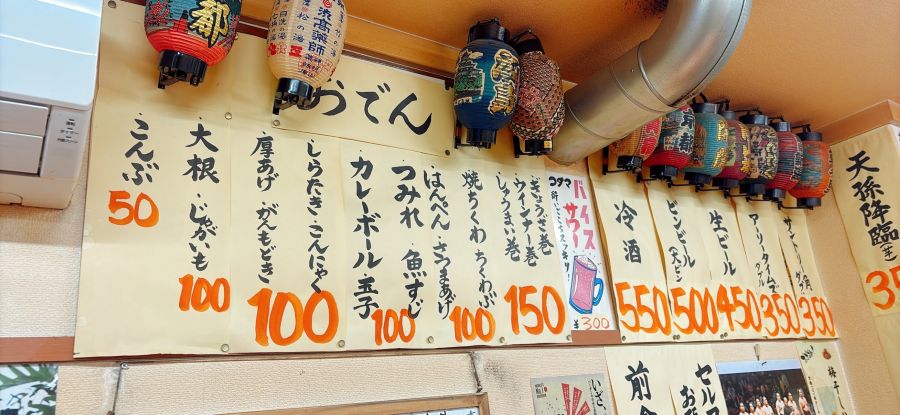 おでん
ぎょうざ巻
ウインナー巻
しゅうまい巻
150
焼ちくわ ちくわぶ
はんぺん さつまあげ
100
つみれ 魚すじ
カレーボール 玉子
100
しらたき・こんにゃく
厚あげ がんもどき
100
大根・じゃがいも
100
こんぶ
50
コダマ
バイス
サワー
¥300
冷酒
550
ビンビール
(大ビン)
500
生ビール
450
350
350
天孫降臨(芋)
35
前
セル
いざ、
梅干